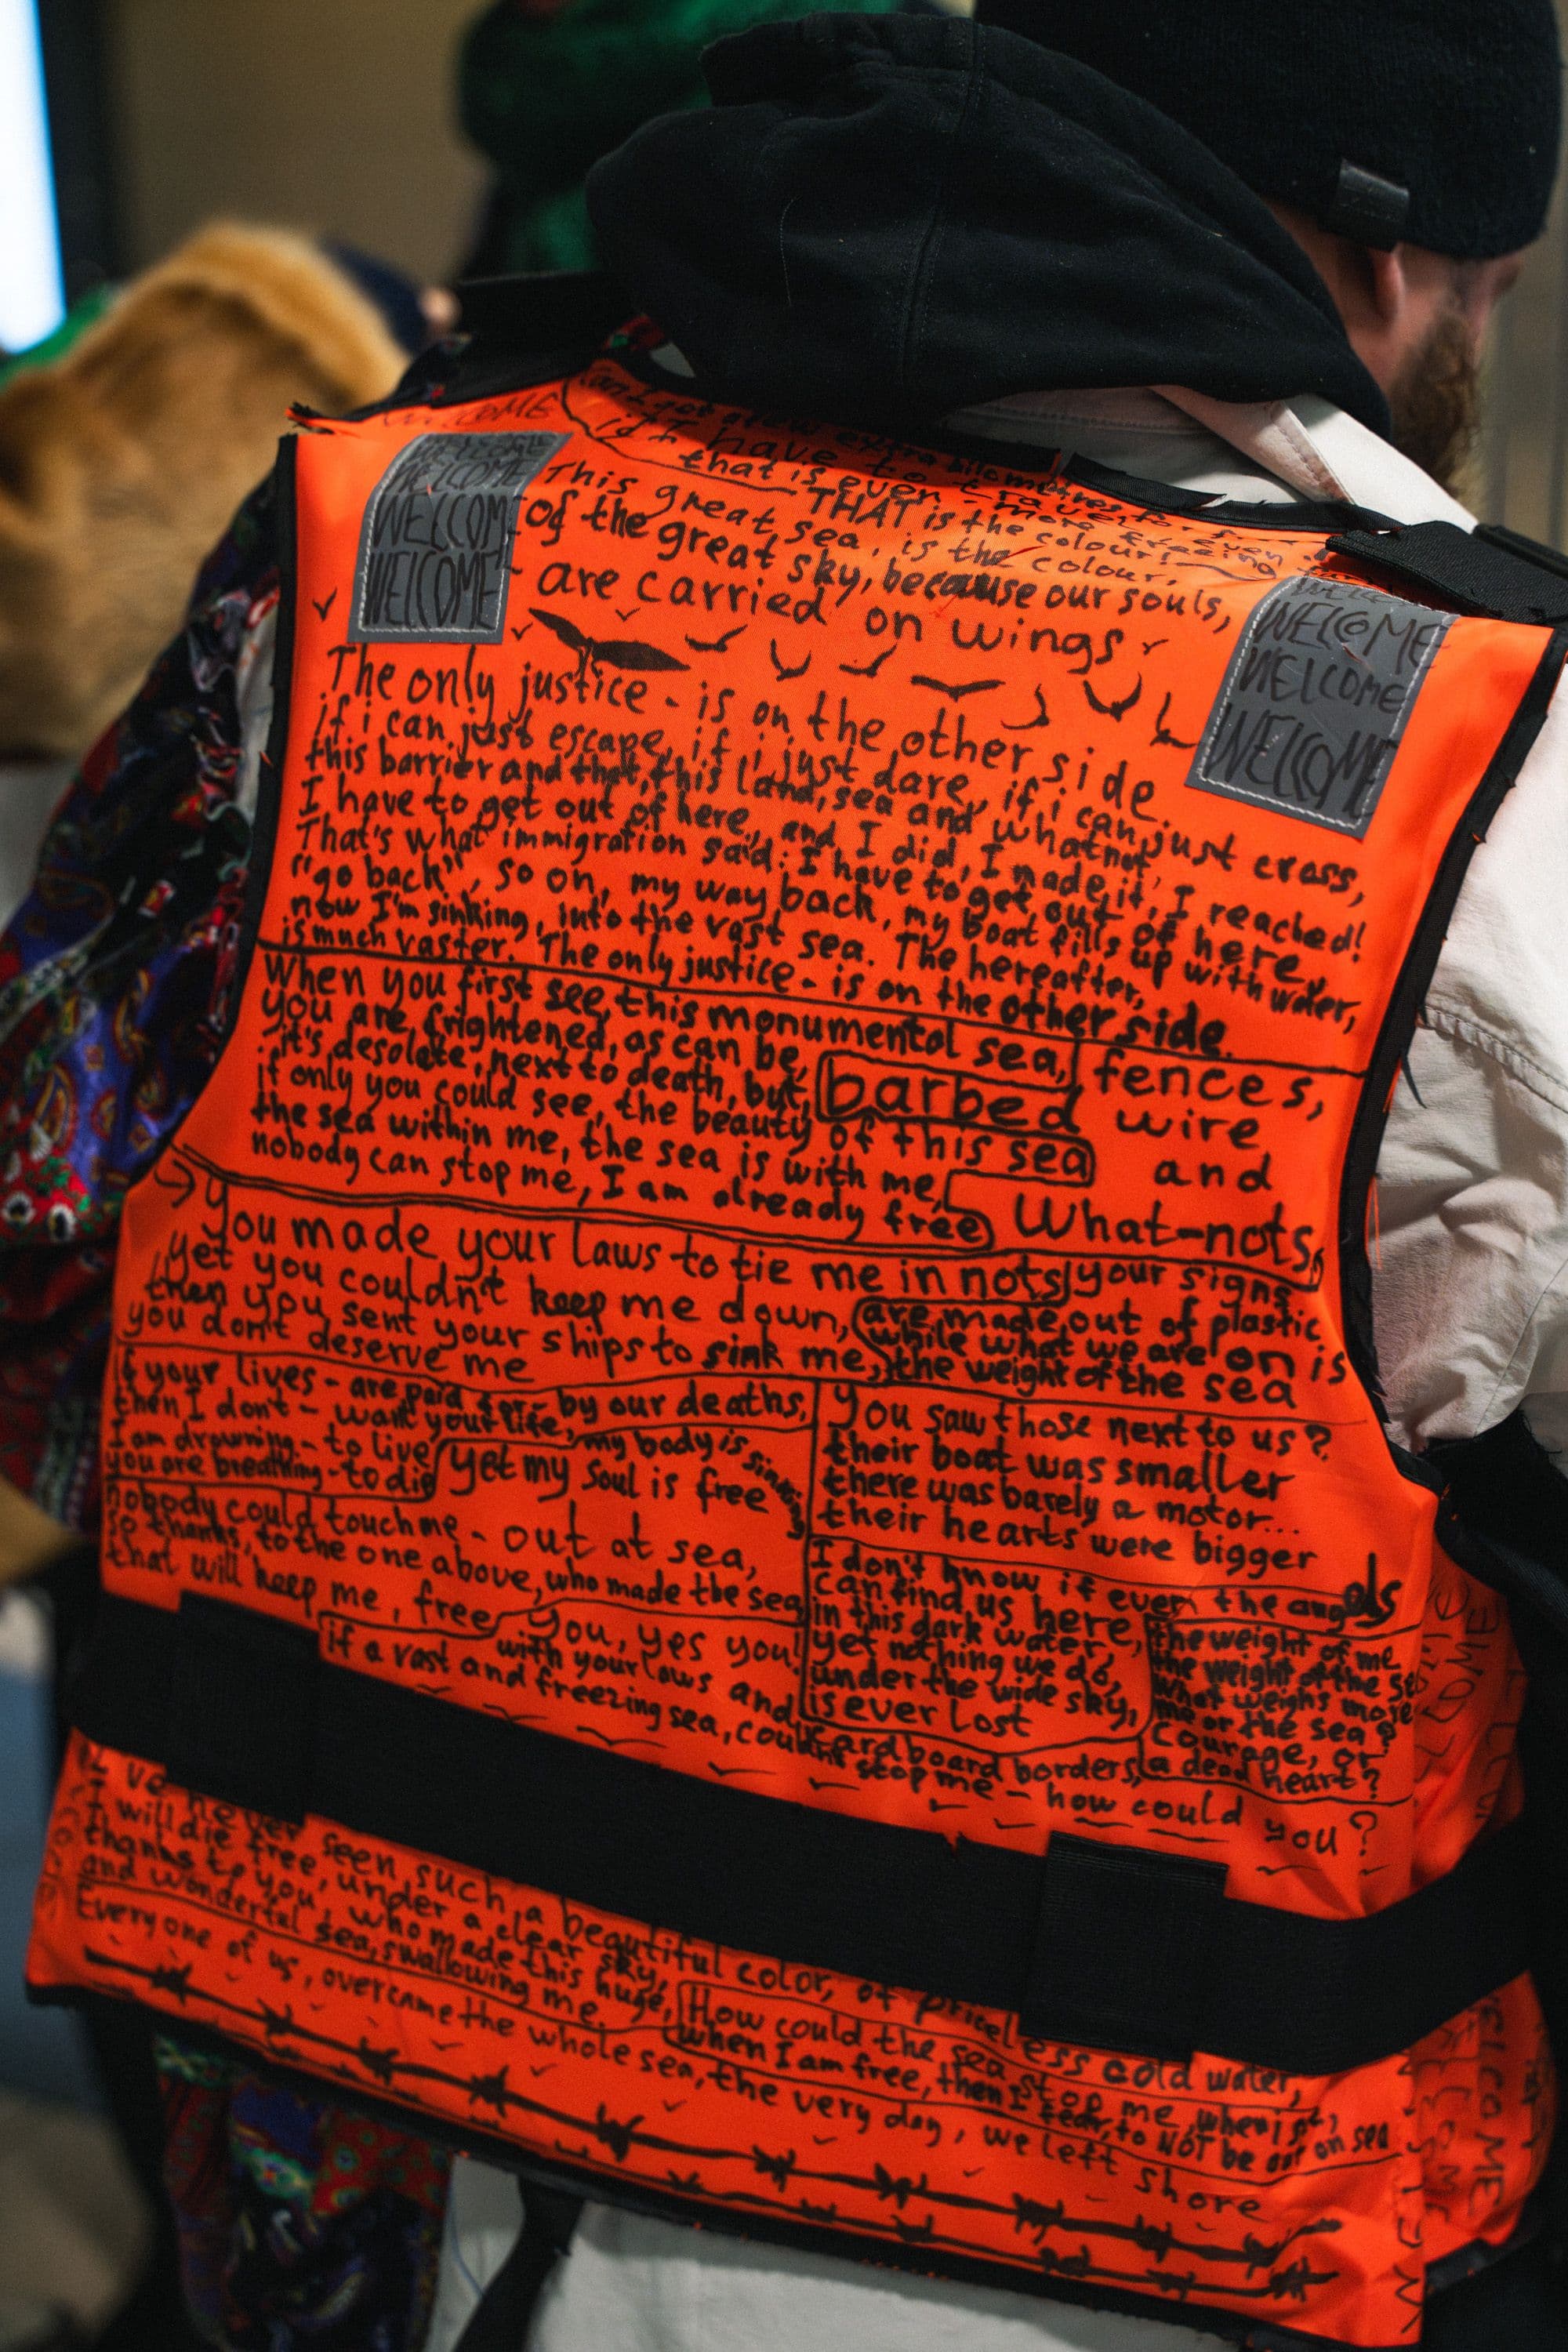 WELCOME
WELCOME
WELCOME
WELCOME
if I have to travel
that is even more freeing
THAT is the colour!
This great sea, is the colour,
of the great sky, because our souls,
- are carried on wings
WELCOME
WELCOME
WELCOME
The only justice - is on the other side.
if i can just escape, if i just dare, if i can just cross,
this barrier and that, this land, sea and whatnot,
I have to get out of here, and I did, I made it, I reached!
That's what immigration said: I have to get out of here,
"go back", so on, my way back, my boat fills up with water,
now I'm sinking, into the vast sea. The hereafter,
is much vaster. The only justice - is on the other side.
When you first see, this monumental sea,
you are frightened, as can be,
it's desolate, next to death, but,
if only you could see, the beauty of this sea
the sea within me, the sea is with me,
nobody can stop me, I am already free
fences,
barbed wire
and
What-nots,
You made your laws to tie me in nots
yet you couldn't keep me down,
then you sent your ships to sink me,
you don't deserve me
your signs
are made out of plastic
while what we are on is
the weight of the sea
if your lives - are paid for - by our deaths,
then I don't - want your life,
I am drowning - to live
you are breathing - to die
my body is sinking
yet my soul is free
nobody could touch me - out at sea,
so thanks, to the one above, who made the sea
that will keep me, free
You saw those next to us?
their boat was smaller
there was barely a motor...
their hearts were bigger
I don't know if even the angels
can find us here,
in this dark water,
yet nothing we do,
under the wide sky,
is ever lost
the weight of me
the weight of the sea
what weighs more
me or the sea?
Courage, or
a dead heart?
You, yes you!
with your laws and cardboard borders,
if a vast and freezing sea, couldn't stop me - how could you?
I've never seen such a beautiful color, of priceless cold water,
I will die free, under a clear sky,
thanks to you, who made this huge,
and wonderful sea, swallowing me.
How could the sea stop me,
when I am free, then I fear, to NOT be out on sea
Every one of us, overcame the whole sea, the very day, we left shore
WELCOME